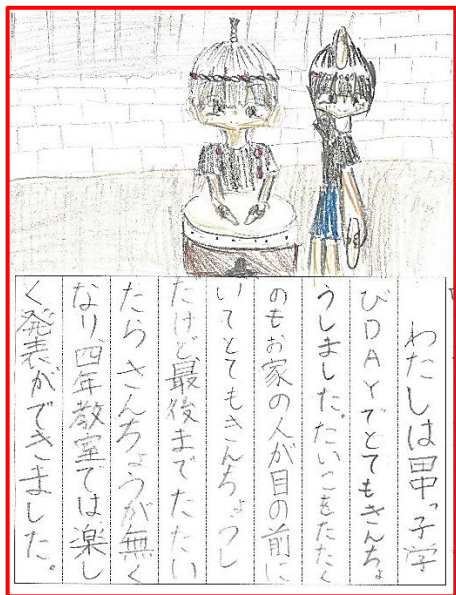 わたしは田中っ子学
びDAYでとてもきんちょ
うしました。たいこをたたく
のもお家の人が目の前に
いてとてもきんちょうし
たけど、最後までたたい
たらきんちょうが無く
なり、四年教室では楽し
く発表ができました。